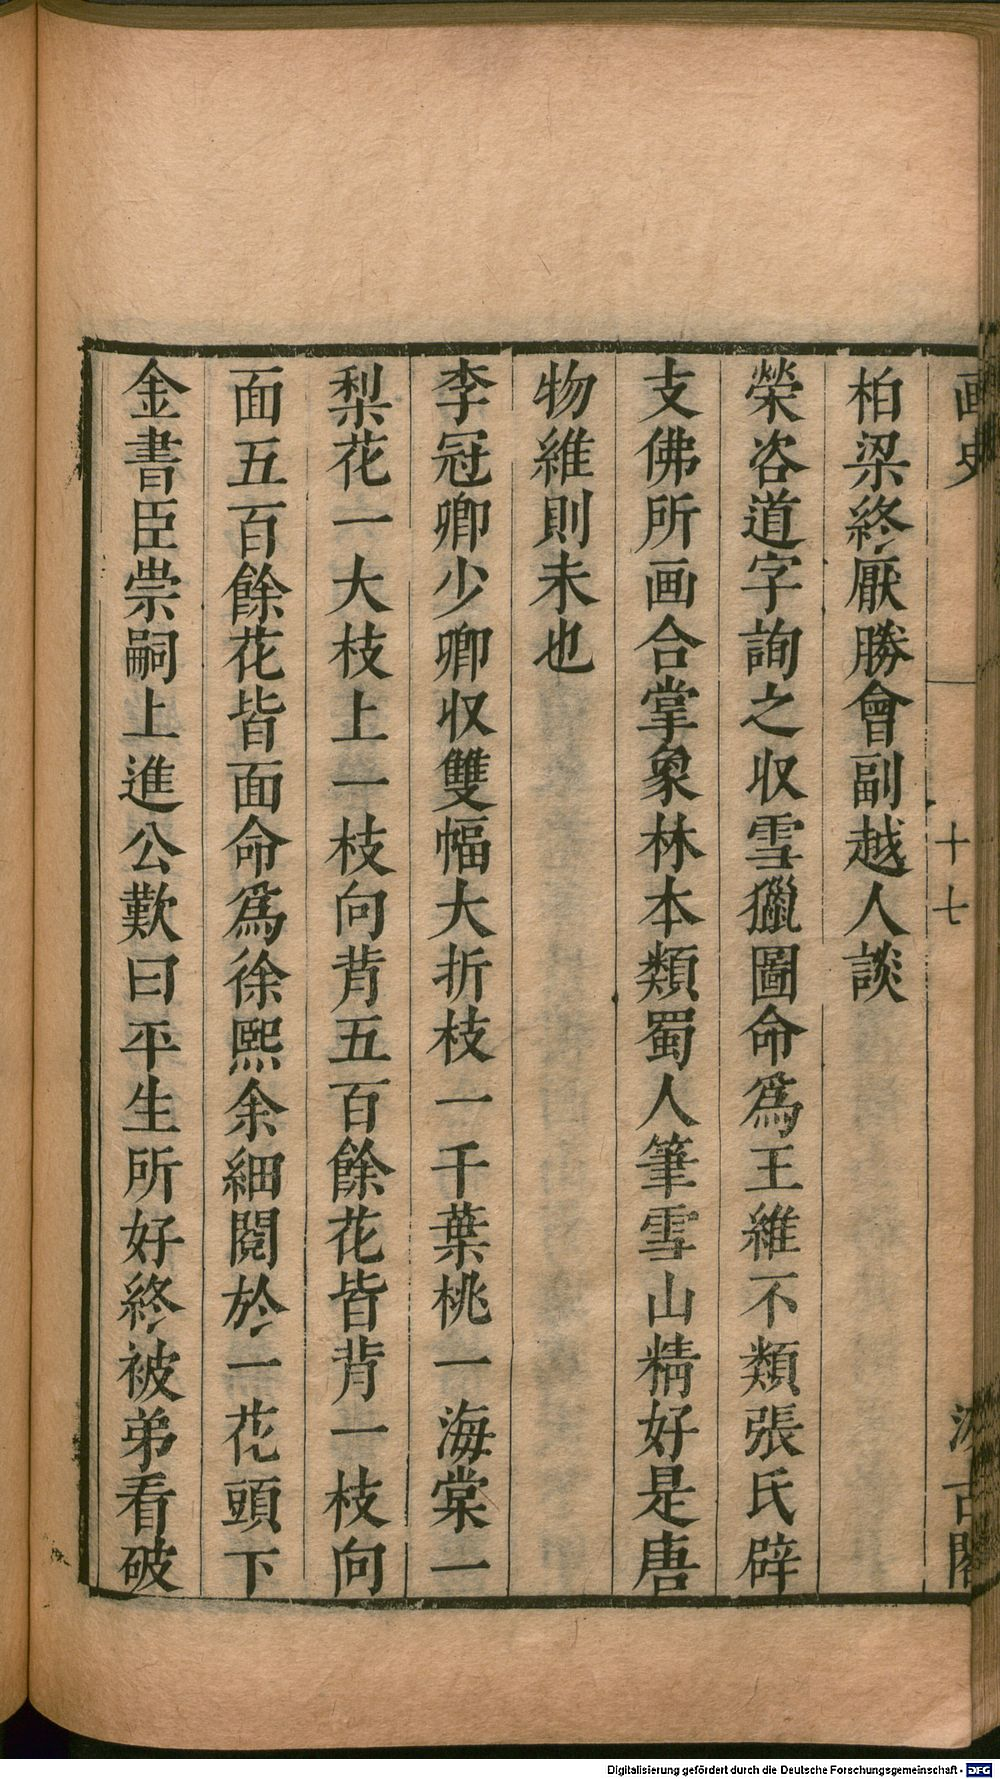 画史
十七
汲古閣
柏梁終厭勝會副越人談
榮咨道字詢之収雪獵圖命爲王維不類張氏辟
支佛所画合掌象林本類蜀人筆雪山精好是唐
物維則未也
李冠卿少卿収雙幅大折枝一千葉桃一海棠一
梨花一大枝上一枝向背五百餘花皆背一枝向
面五百餘花皆面命爲徐熙余細閱於一花頭下
金書臣崇嗣上進公歎曰平生所好終被弟看破
Digitalisierung gefördert durch die Deutsche Forschungsgemeinschaft - DFG